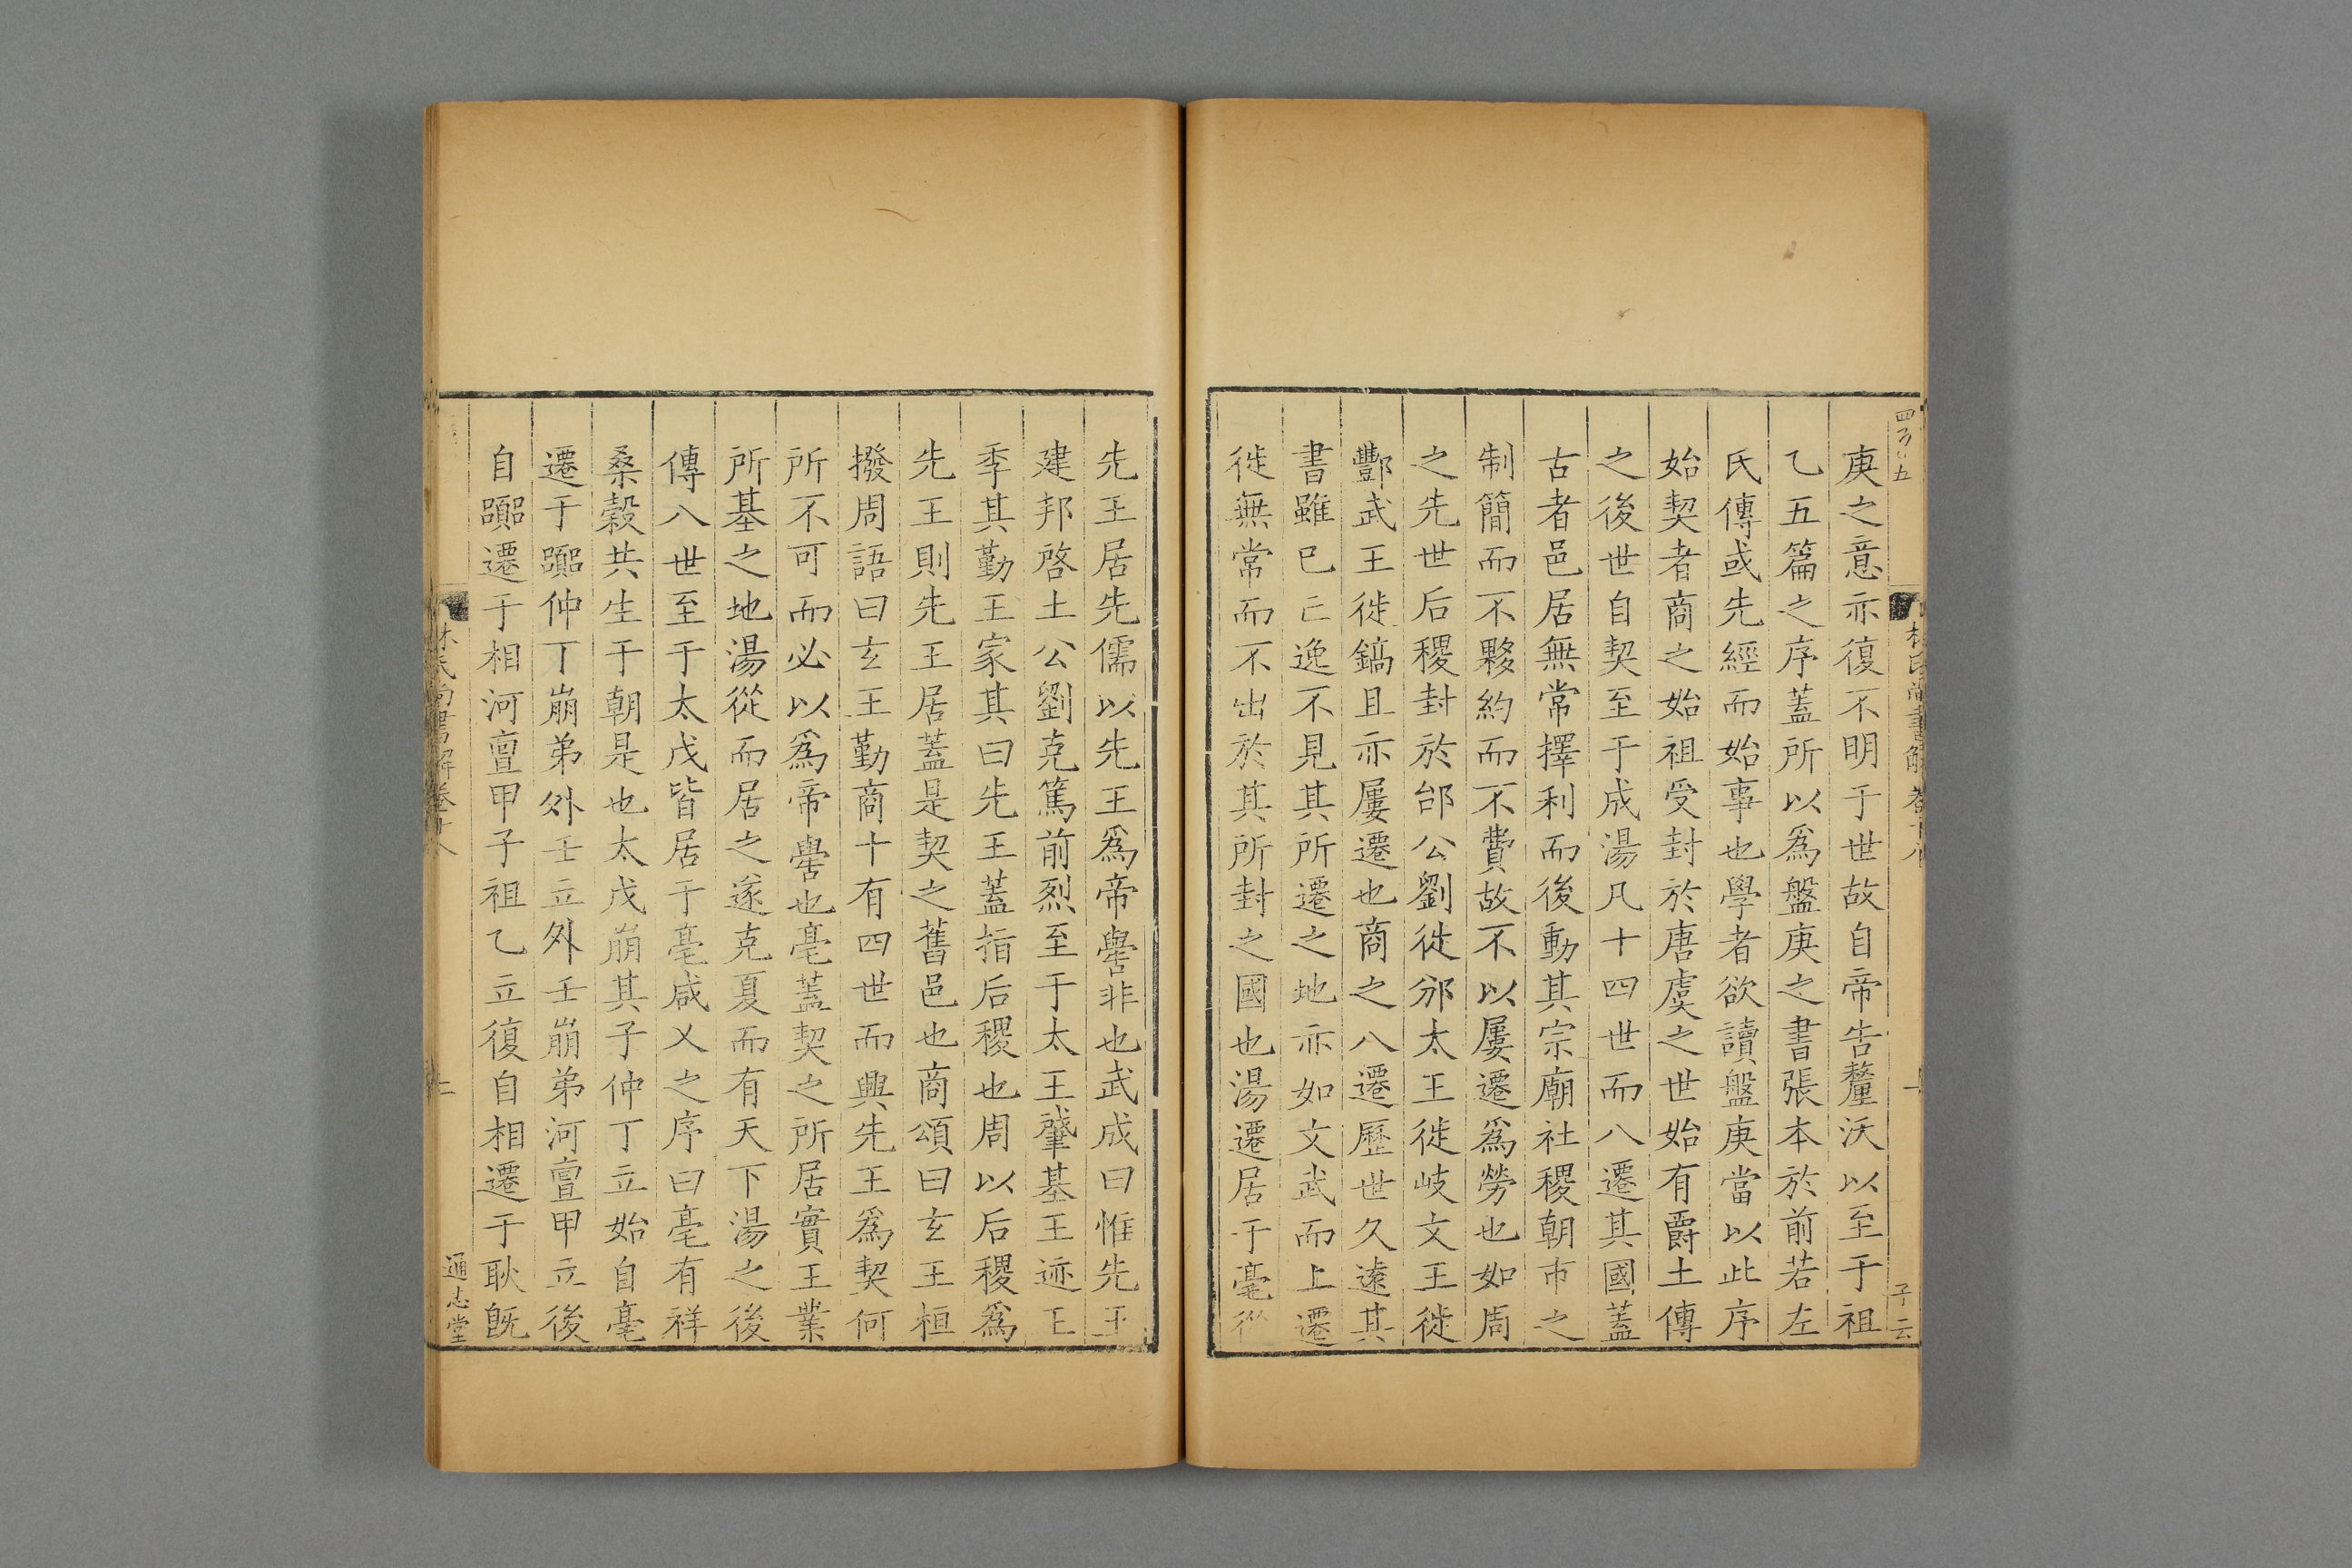 庚之意亦復不明于世故自帝告釐沃以至于祖
乙五篇之序蓋所以爲盤庚之書張本於前若左
氏傳或先經而始事也學者欲讀盤庚當以此序
始契者商之始祖受封於唐虞之世始有爵土傳
之後世自契至于成湯凡十四世而八遷其國蓋
古者邑居無常擇利而後動其宗廟社稷朝市之
制簡而不夥約而不費故不以屢遷爲勞也如周
之先世后稷封於邰公劉徙邠太王徙岐文王徙
酆武王徙鎬且亦屢遷也商之八遷歷世久遠其
書雖已亡逸不見其所遷之地亦如文武而上遷
徙無常而不出於其所封之國也湯遷居于亳從
先王居先儒以先王爲帝嚳非也武成曰惟先王
建邦啓土公劉克篤前烈至于太王肇基王迹王
季其勤王家其曰先王蓋指后稷也周以后稷爲
先王則先王居蓋是契之舊邑也商頌曰玄王桓
撥周語曰玄王勤商十有四世而興先王爲契何
所不可而必以爲帝嚳也亳蓋契之所居實王業
所基之地湯從而居之遂克夏而有天下湯之後
傳八世至于太戊皆居于亳咸乂之序曰亳有祥
桑榖共生于朝是也太戊崩其子仲丁立始自亳
遷于嚻仲丁崩弟外壬立外壬崩弟河亶甲立後
自嚻遷于相河亶甲子祖乙立復自相遷于耿旣
林氏尚書解卷十八
通志堂